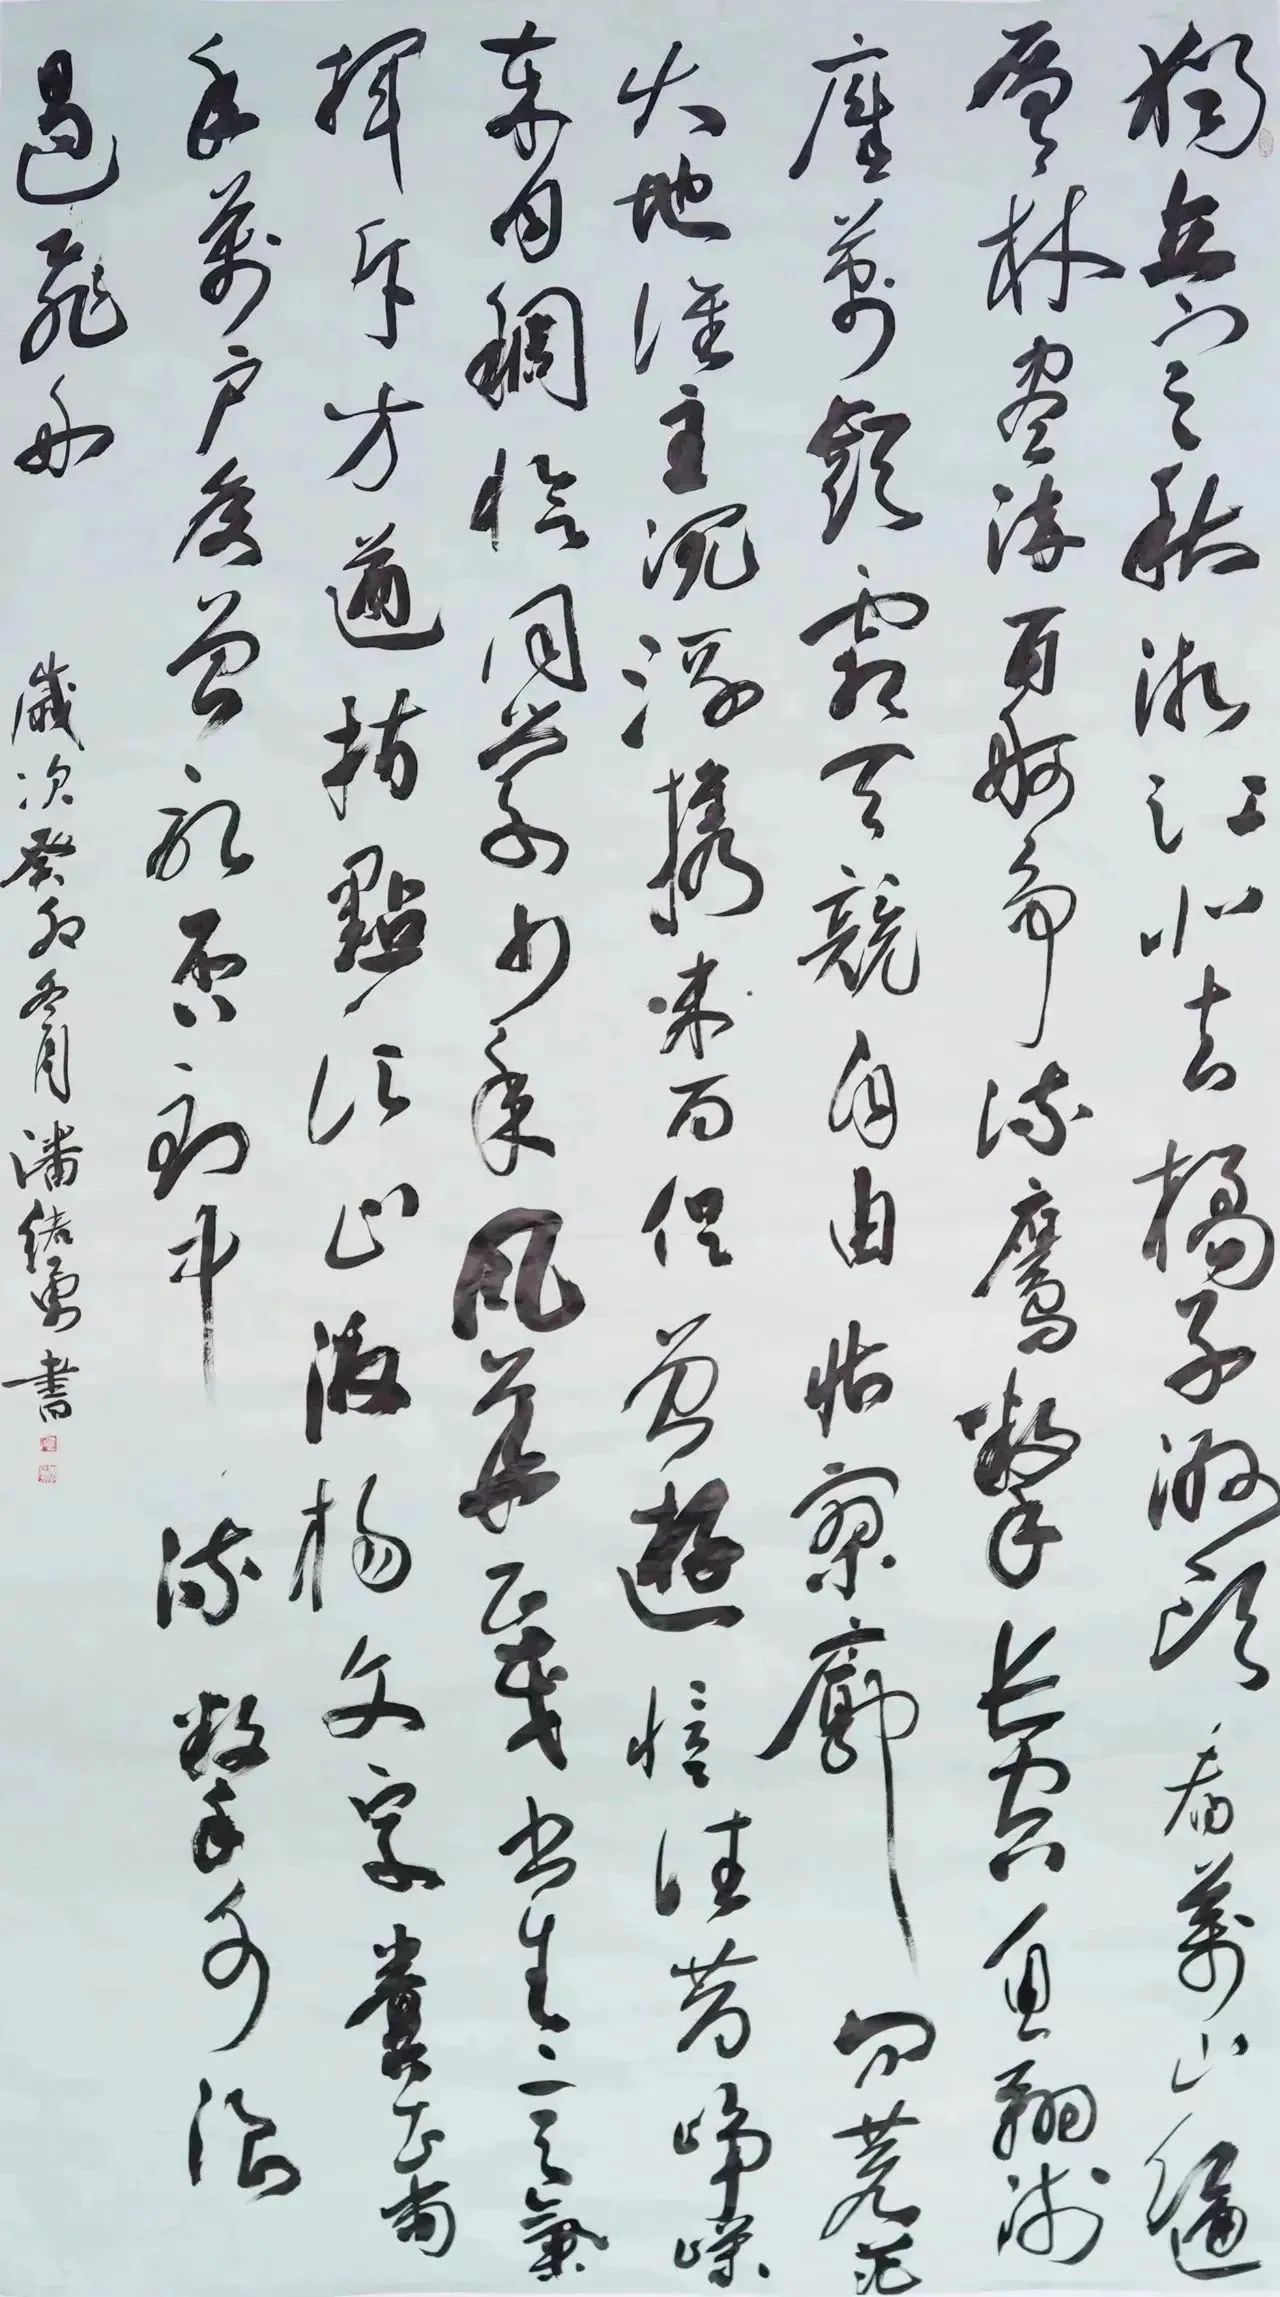 獨立寒秋湘江北去橘子洲頭看萬山遍
層林盡染百舸爭流鷹擊長空魚翔淺
底萬類霜天競自由悵寥廓問蒼茫
大地誰主沉浮攜來百侶曾遊憶往昔崢嶸
歲月稠恰同學少年風華正茂書生意氣
揮斥方遒指點江山激揚文字糞土當
年萬戶侯曾記否到中流擊水浪
遏飛舟
歲次癸卯冬月潘緒勇書